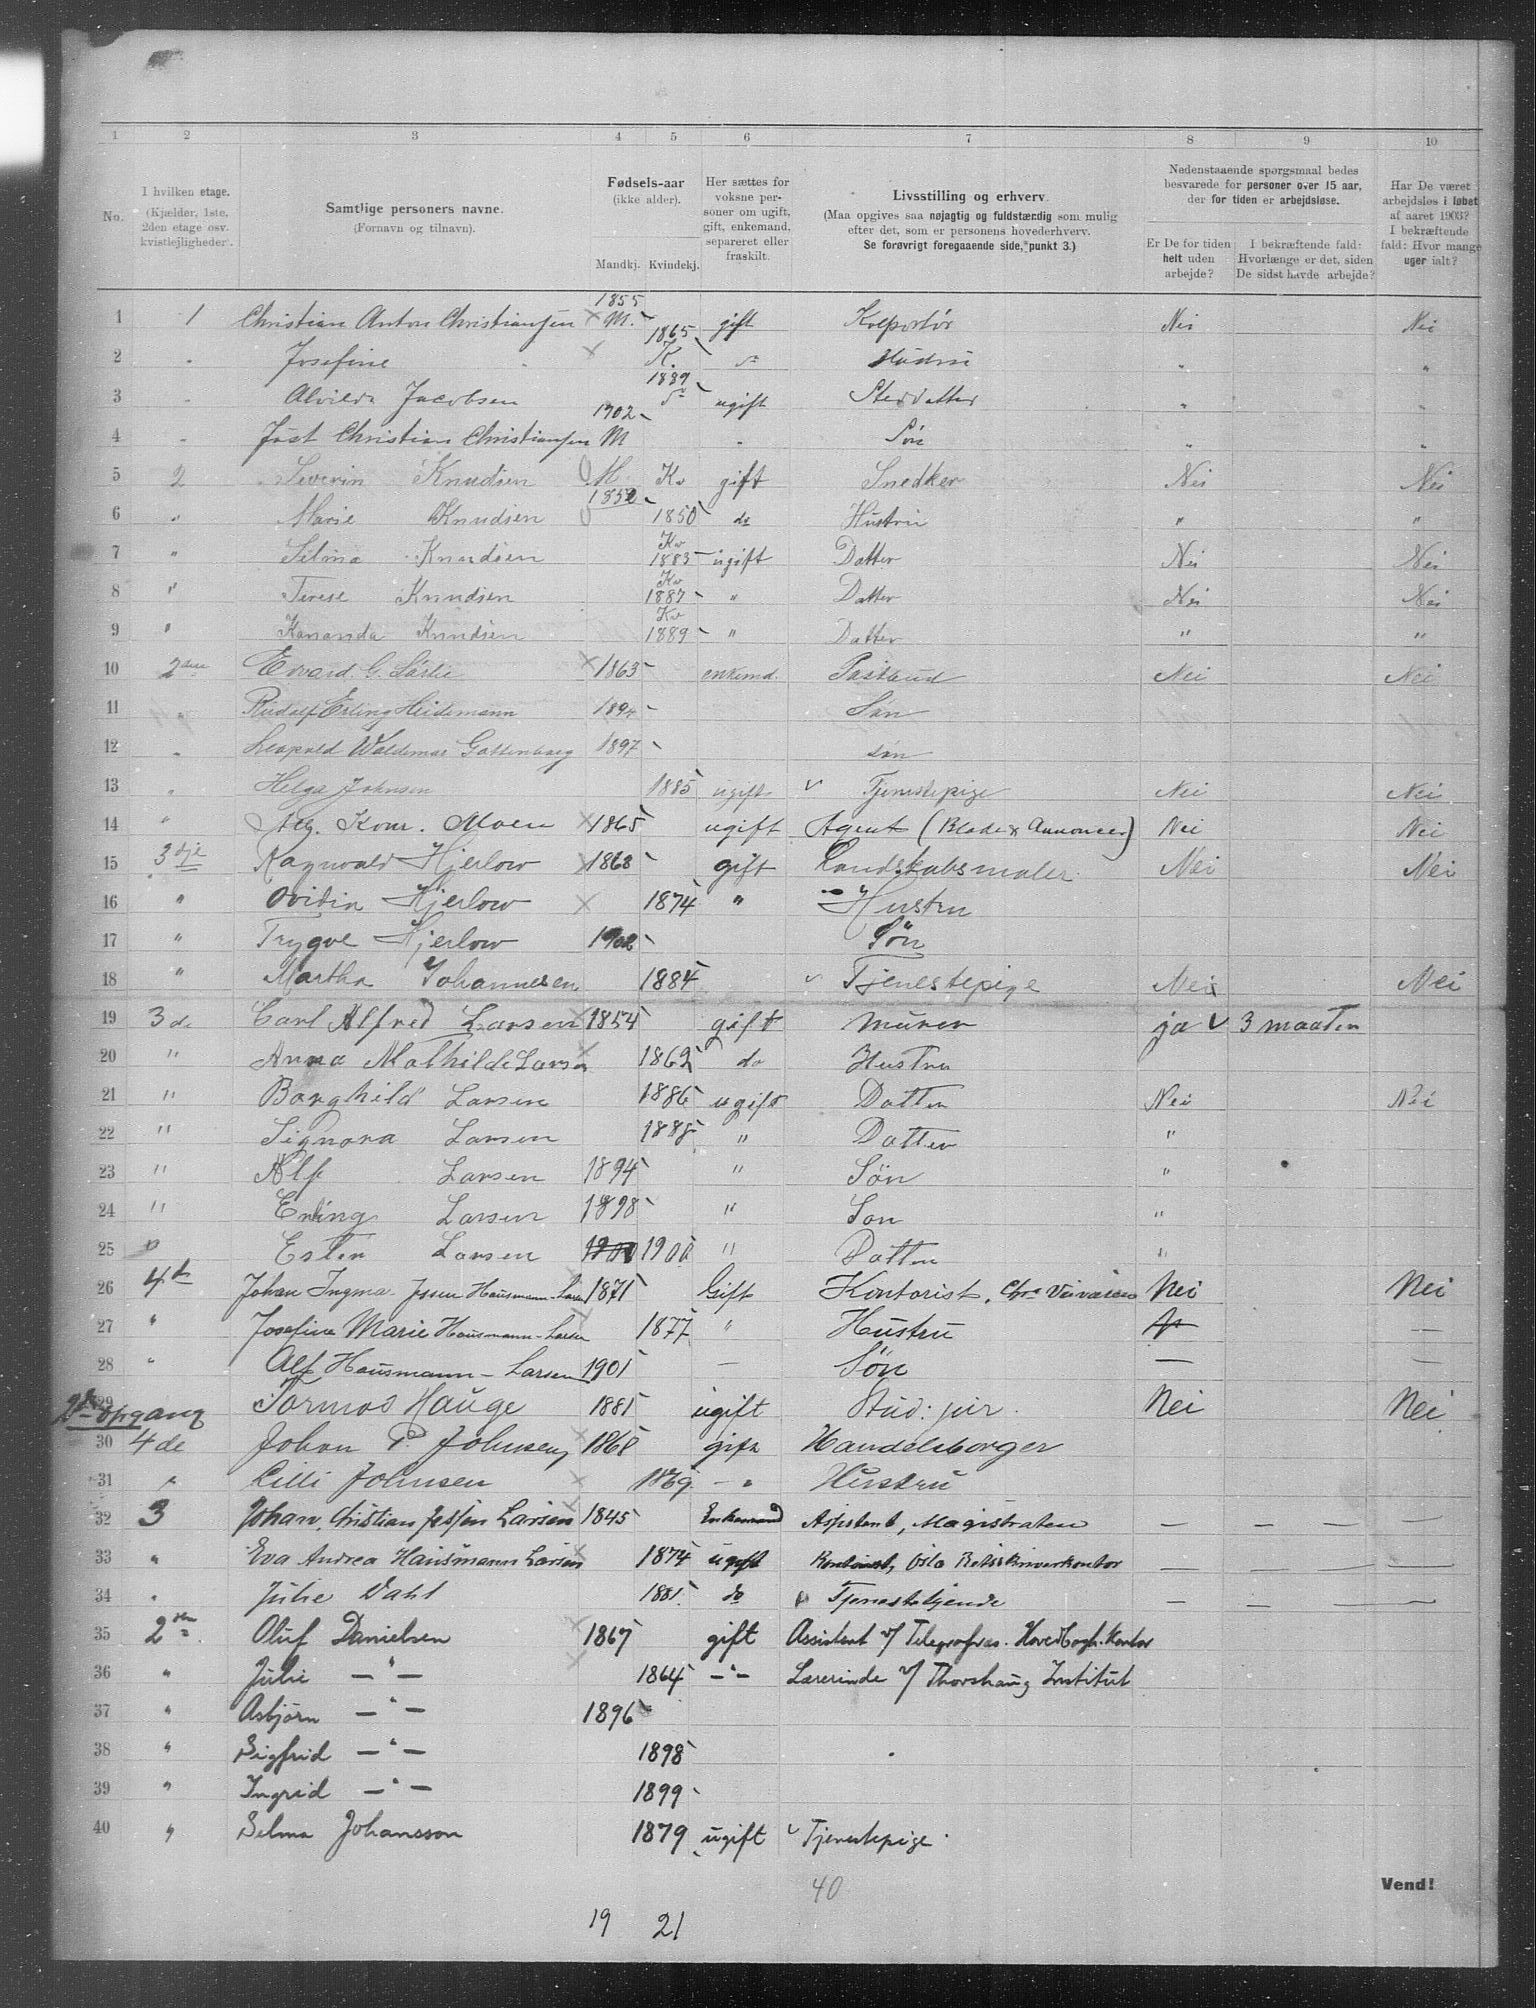 1 2 3 4 5 6 7 8 9 10
No. I hvilken etage. (Kjælder, 1ste, 2den etage osv. kvistleiligheder). Samtlige personers navne. (Fornavn og tilnavn). Fødsels-aar (ikke alder). Mandkj. Kvindekj. Her sættes for voksne personer om ugift, gift, enkemand, separeret eller fraskilt. Livsstilling og erhverv. (Maa opgives saa nøjagtig og fuldstændig som mulig efter det, som er personens hovederhverv. Se forøvrigt foregaaende side, punkt 3.) Nedenstaaende spørgsmaal bedes besvarede for personer over 15 aar, der for tiden er arbejdsløse. Er De for tiden helt uden arbejde? I bekræftende fald: Hvorlænge er det, siden De sidst havde arbejde? Har De været arbejdsløs i løbet af aaret 1903? I bekræftende fald: Hvor mange uger ialt?
1 1 Christian Anton Christiansen × 1855 M. gift Kolportør Nei Nei
2 " Josefine " × 1865 K. do Hustru " "
3 " Alvilda Jacobsen 1889 do ugift Steddatter " "
4 " Jost Christian Christiansen 1902 M " Søn " "
5 2 Severin Knudsen M Kv gift Snedker Nei Nei
6 " Marie Knudsen 1852 1850 do Hustru " "
7 " Selma Knudsen Kv 1883 ugift Datter Nei Nei
8 " Terese Knudsen Kv 1887 " Datter Nei Nei
9 " Knudsen Kv 1889 " Datter " "
10 2den Edvard G. × 1863 enkemd. Nei Nei
11 " Rudolf Erling Heidemann 1894 Søn
12 " Leopold Waldemar 1897 søn
13 " Helga Johnsen 1885 ugift Tjenestepige Nei Nei
14 " Aug. Konr. Moen × 1865 ugift Agent (Blade & Annoncer) Nei Nei
15 3dje Ragnvald Hjerlow × 1863 gift Landskabsmaler Nei Nei
16 " Ovidia Hjerlow × 1874 " Hustru
17 " Trygve Hjerlow 1902 Søn
18 " Martha Johannesen 1884 Tjenestepige Nei Nei
19 3de Carl Alfred Larsen × 1854 gift Murer ja 3 maaten
20 " Anna Mathilde Larsen × 1862 do Hustru
21 " Borghild Larsen 1886 ugift Datter Nei Nei
22 " Signora Larsen 1888 " Datter "
23 " Alf Larsen 1894 " Søn "
24 " Erling Larsen 1898 " Søn "
25 " Ester Larsen 1900 1900 " Datter "
26 4de Johan Ingma. Jessen Hausmann-Larsen 1871 Gift Kontorist, Nei Nei
27 " Josefine Marie Hausmann-Larsen 1877 " Hustru —
28 " Alf Hausmann-Larsen 1901 — Søn — —
29 Tormod Hauge 1881 ugift Stud: jur. Nei Nei
2den opgang
30 4de Johan P. Johnsen × 1868 gift Handelsborger
31 " Cilli Johnsen × 1869 — " Hustru
32 3 Johan Christian Jessen Larsen × 1845 Enkemand Assistent, Magistraten — — —
33 " Eva Andrea Hausmann Larsen × 1874 ugift Kontorist, Oslo — — —
34 " Julie Dahl 1881 do Tjenestepigende — — —
35 2den Oluf Danielsen × 1867 gift Assistent v/ Telegrafvæs. Hovedbogh.kontor
36 " Julie — " — × 1864 — " — Lærerinde v/ Thorshaug Institut
37 " Asbjørn — " — 1896
38 " Sigfrid — " — 1898
39 " Ingrid — " — 1899
40 " Selma Johansson 1879 ugift Tjenestepige.
40
Vend!
19 21